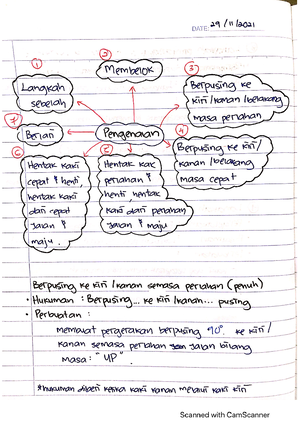 DATE: 29/11/2021
①
Langkah
sebelah
②
Membelok
③
Berpusing ke
kiri/kanan/belakang
masa perlahan
⑦
Berlari
Pengenalan
④
Berpusing ke kiri/
kanan/belakang
masa cepat
⑥
Hentak kaki
cepat & henti,
hentak kaki
dari cepat
jalan &
maju.
⑤
Hentak kaki
perlahan &
henti, hentak
kaki dari perlahan
jalan & maju
Berpusing ke kiri/kanan semasa perlahan (penuh)
• Hukuman : Berpusing... ke kiri/kanan... pusing
• Perbuatan :
membuat pergerakan berpusing 90° ke kiri/
kanan semasa perlahan jalan bilang
masa: "UP".
*hukuman diberi ketika kaki kanan melalui kaki kiri
Scanned with CamScanner